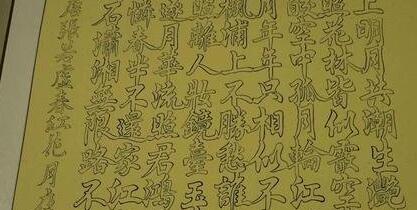 上明月共潮生灩
照花林皆似霰空
皎空中孤月輪江
月年年只相似不
楓浦上不勝愁誰
照離人妝鏡臺玉
逐月華流照君鴻
憐春半不還家江
石瀟湘無限路不
唐張若虛春江花月夜